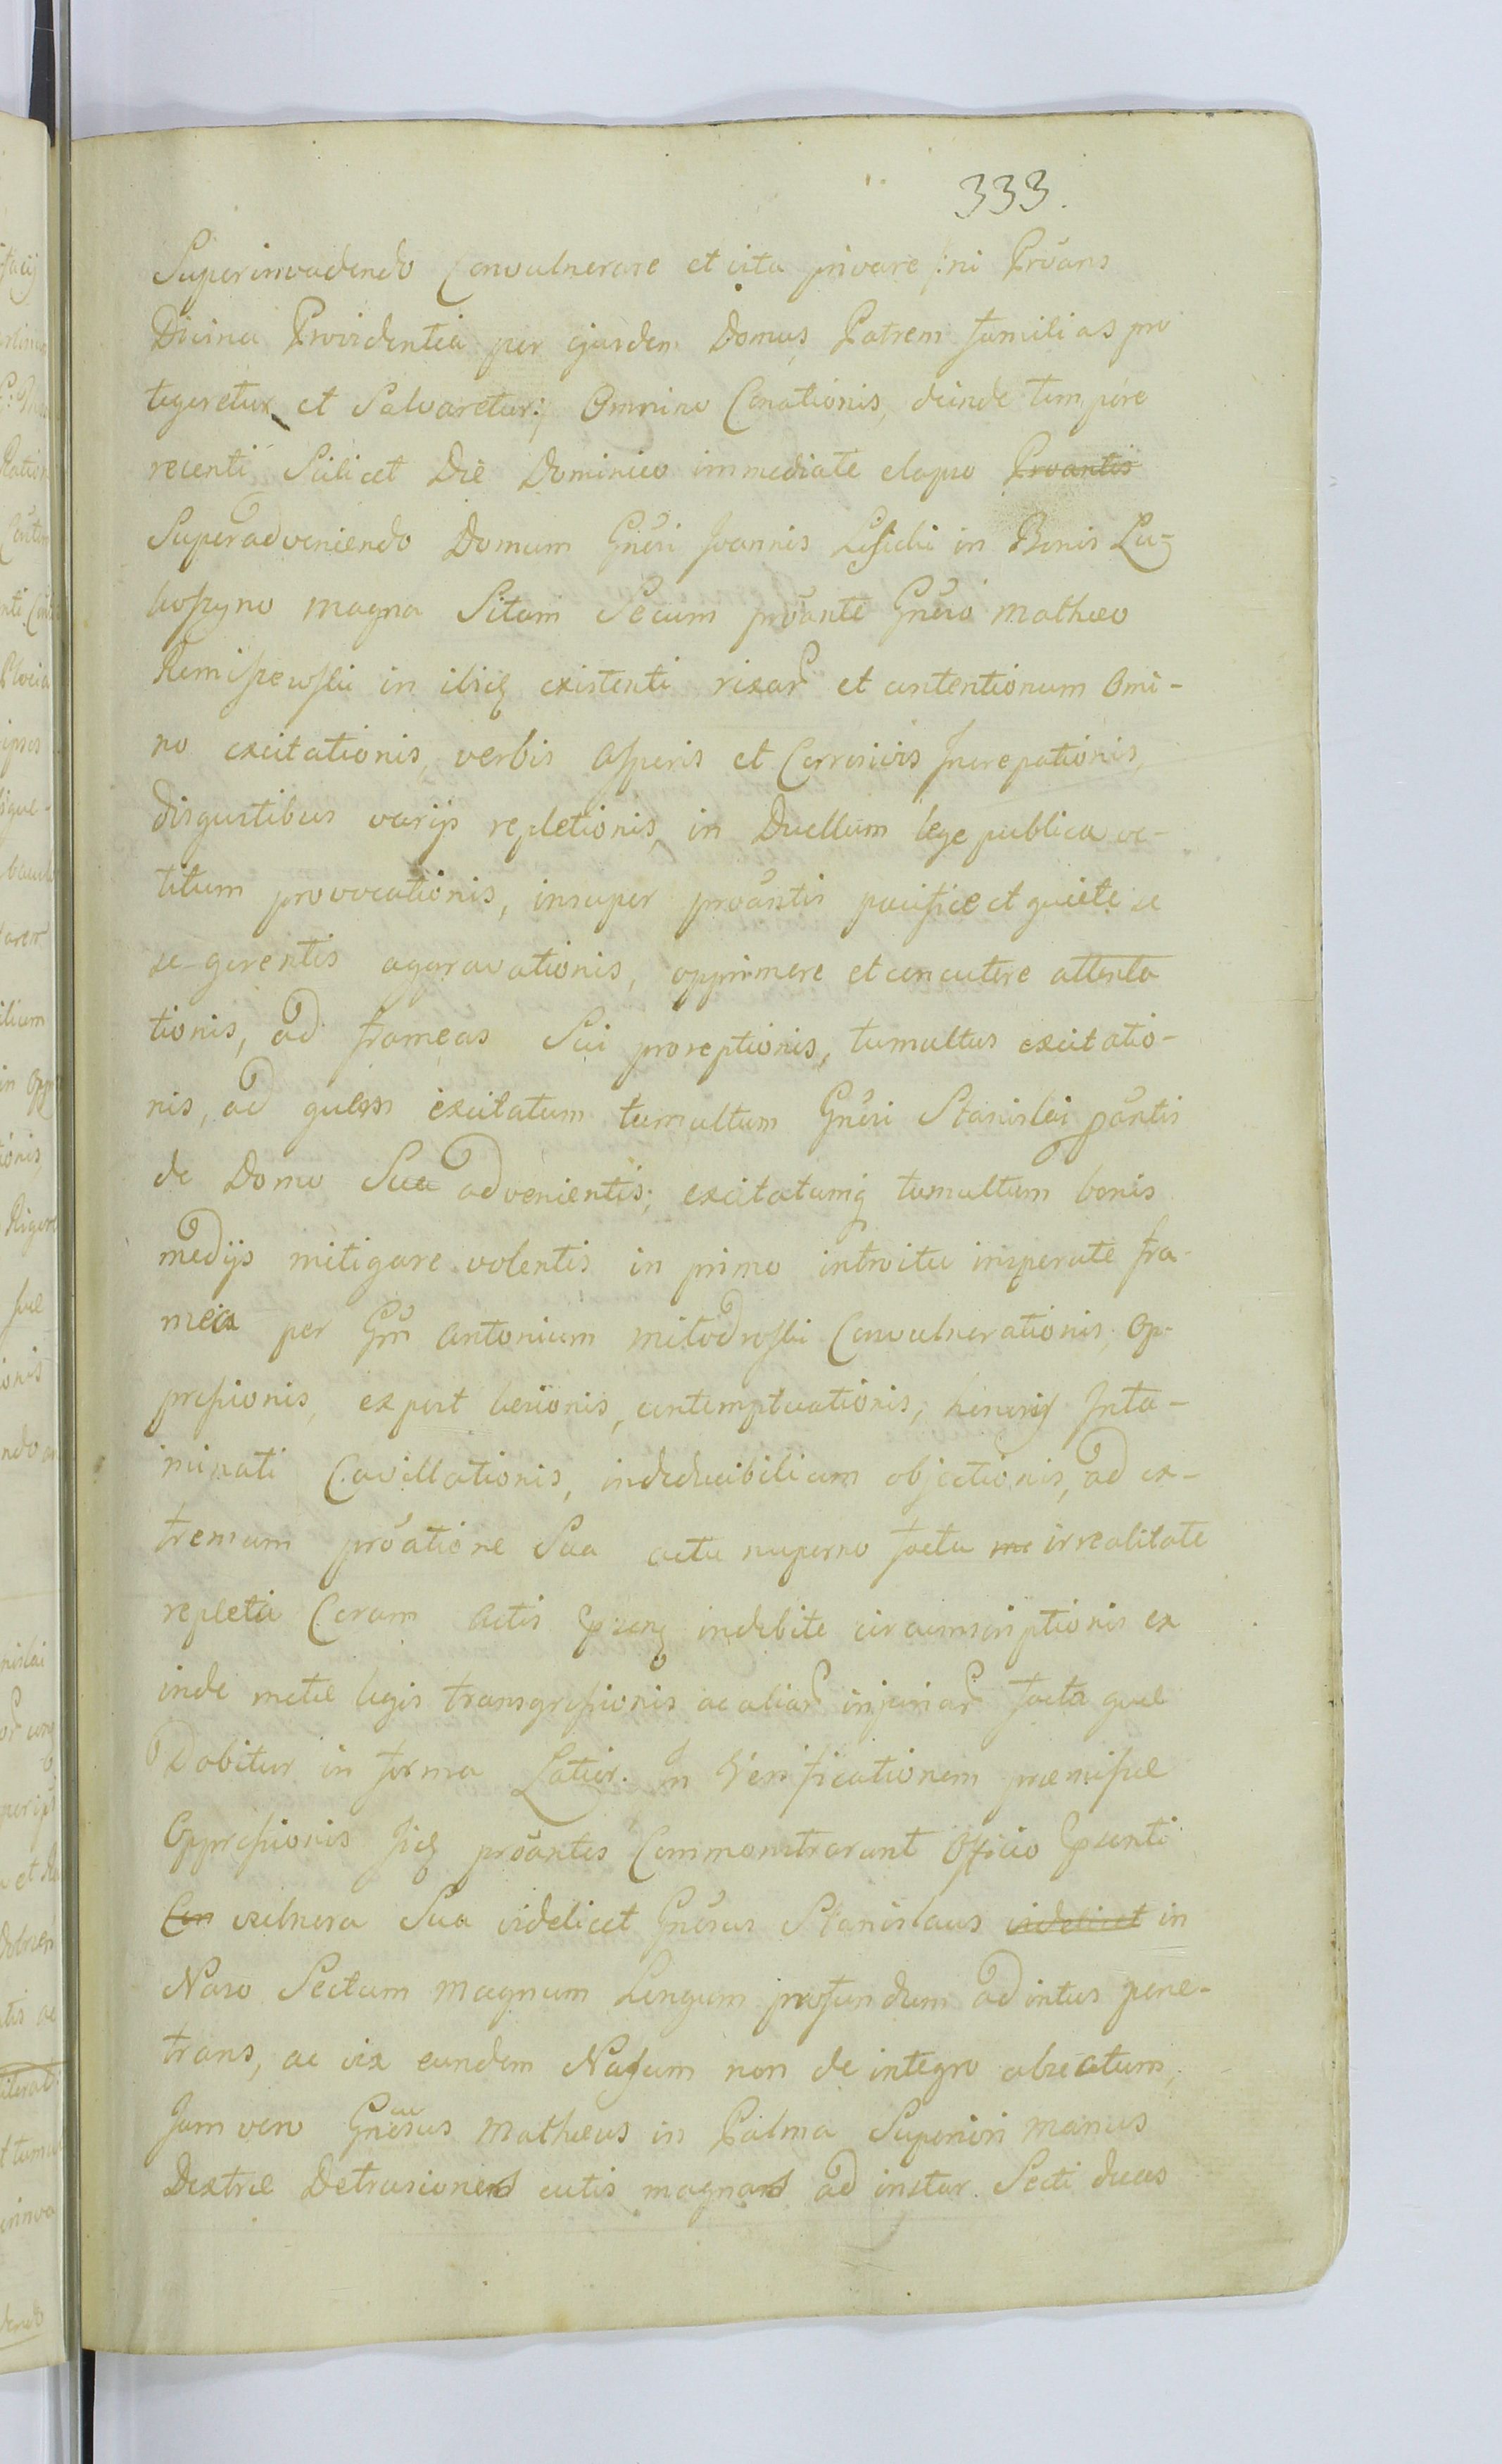 333.
Superinvadendo Convulnerare et vita privare /:ni Prõans
Divina Providentia per ejusdem Domus Patrem familias pro
tegeretur et Salvaretur:/ Omnino Conationis, deinde tempore
recenti Scilicet Die Dominico immediate elapso Proantis
Superadveniendo Domum Gnõsi Joannis in Bonis Lu-
boszyno magna Sitam Secum prõante Gnõso Mathæo
in ibiq existenti rixar et contentionum Omi-
no excitationis, verbis Asperis et Corrosivis Increpationis,
disgustibus varijs repletionis, in Duellum lege publica ve-
titum provocationis, insuper prõantis pacifice et quiete se
se gerentis aggravationis, opprimere et concutere attenta
tionis, ad frameas Sui proreptionis, tumultus excitatio-
nis, ad quem excitatum tumultum Gnõsi Stanislai põantis
de Domo Sua advenientis, excitatumq tumultum bonis
medijs mitigare volentis in primo introitu insperate fra-
mea per Gnm Antonium Convulnerationis, Op-
pressionis, expost læsionis, contemptuationis, honoris Inta-
minati Cavillationis, indeducibilium objectionis, ad ex-
tremum prõatione Sua actu nuperno facta me irrealitate
repleta Coram Actis indebite circumscriptionis ex
inde metæ legis transgressionis ac aliar injuriar facta quæ
Dabitur in forma Latior. In Verificationem præmissæ
Oppressionis Iidq prõantes Commonstrarunt Officio Psenti
Con vulnera Sua videlicet Gnõsus Stanislaus videlicet in
Naso Sectum magnum Longum profundum ad intus pene-
trans, ac vix eundem Nasum non de integro absectum,
Jam vero Gnõsus Mathæus in Palma Superiori manus
Dextræ Detrusionem cutis magnam ad instar Secti duas